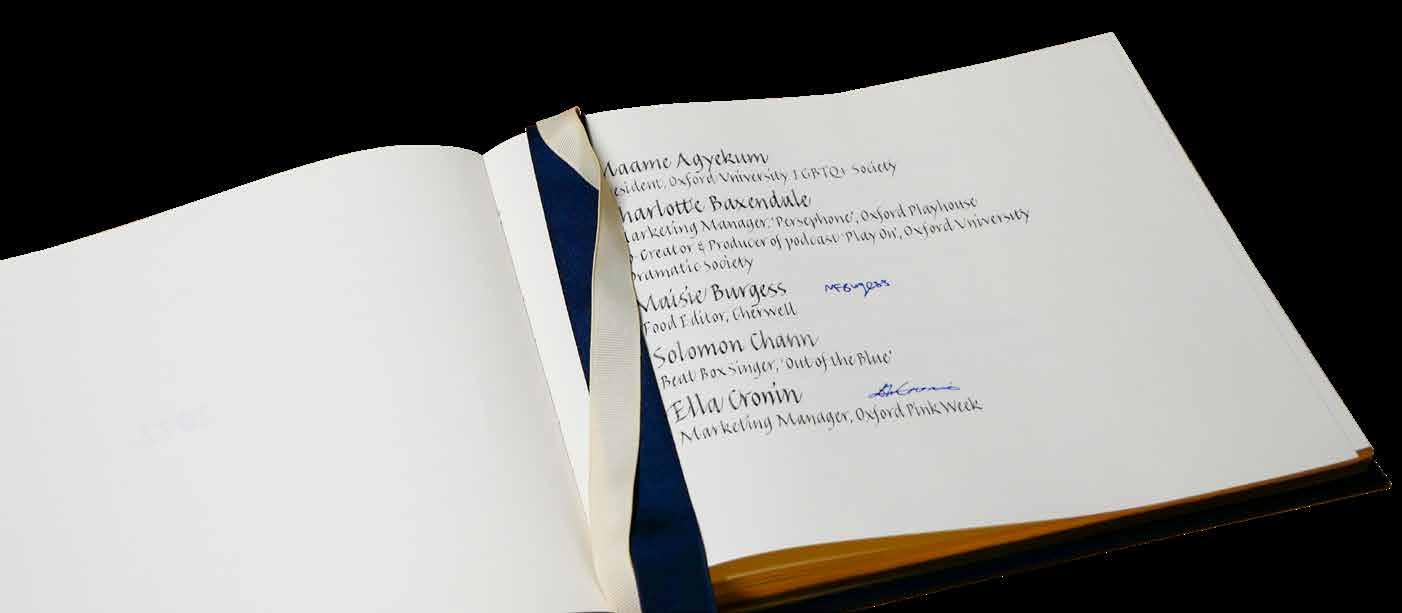 Maame Agyekum
esident, Oxford University LGBTQ+ Society
harlotte Baxendale
arketing Manager, 'Persephone', Oxford Playhouse
o-Creator & Producer of podcast 'Play On', Oxford University
Dramatic Society
Maisie Burgess MFBurgess
Food Editor, Cherwell
Solomon Chann
Beat Box Singer, 'Out of the Blue'
Ella Cronin
Marketing Manager, Oxford Pink Week